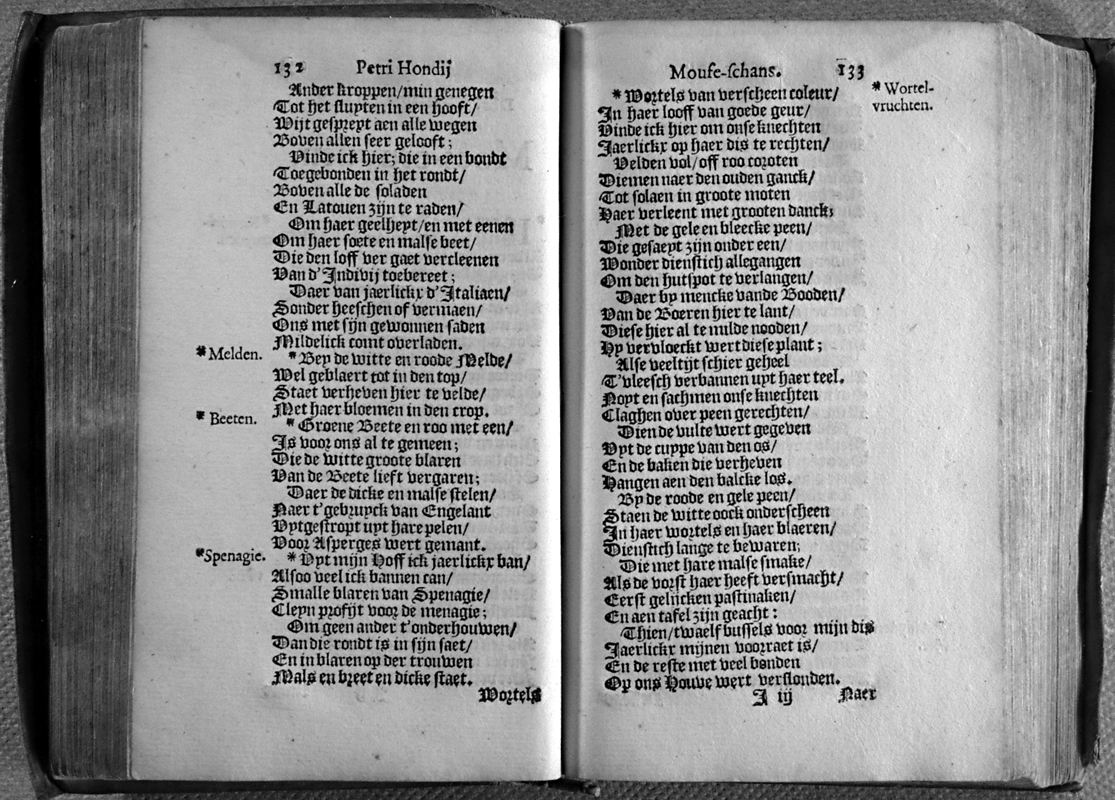 132 Petri Hondij
Ander kroppen/min genegen
Tot het sluyten in een hooft/
Wijt gespreyt aen alle wegen
Boven allen seer gelooft;
Vinde ick hier; die in een bondt
Toegebonden in het rondt/
Boven alle de soladen
En Latouen zijn te raden/
Om haer geelheyt/en met eenen
Om haer soete en malse beet/
Die den loff ver gaet vercleenen
Van d'Indivij toebereet;
Daer van jaerlickx d'Italiaen/
Sonder heeschen of vermaen/
Ons met sijn gewonnen saden
Mildelick comt overladen.
*Melden.
*Bey de witte en roode Melde/
Wel geblaert tot in den top/
Staet verheven hier te velde/
Met haer bloemen in den crop.
* Beeten.
*Groene Beete en roo met een/
Is voor ons al te gemeen;
Die de witte groote blaren
Van de Beete lieft vergaren;
Daer de dicke en malse stelen/
Naer t'gebruyck van Engelant
Vytgestropt uyt hare pelen/
Voor Asperges wert gemant.
*Spenagie.
*Vyt mijn Hoff ick jaerlickx ban/
Alsoo veel ick bannen can/
Smalle blaren van Spenagie/
Cleyn profijt voor de menagie;
Om geen ander t'onderhouwen/
Dan die rondt is in sijn saet/
En in blaren op der trouwen
Mals en breet en dicke staet.
Wortels
Mouse-schans. 133
* Wortel-
vruchten.
* Wortels van verscheen coleur/
In haer looff van goede geur/
Vinde ick hier om onse knechten
Jaerlickx op haer dis te rechten/
Velden vol/off roo coroten
Diemen naer den ouden ganck/
Tot solaen in groote moten
Haer verleent met grooten danck;
Met de gele en bleecke peen/
Die gesaeyt zijn onder een/
Wonder dienstich allegangen
Om den hutspot te verlangen/
Daer by mencke vande Booden/
Van de Boeren hier te lant/
Diese hier al te milde nooden/
Hy vervloeckt wert diese plant;
Alse veeltijt schier geheel
T'vleesch verbannen uyt haer teel.
Noyt en sachmen onse knechten
Claghen over peen gerechten/
Dien de vulte wert gegeven
Vyt de cuppe van den os/
En de baken die verheven
Hangen aen den balcke los.
By de roode en gele peen/
Staen de witte oock onderscheen
In haer wortels en haer blaeren/
Dienstich lange te bewaren;
Die met hare malse smake/
Als de vorst haer heeft versmacht/
Eerst gelijcken pastinaken/
En aen tafel zijn geacht:
Thien/twaelf bussels voor mijn dis
Jaerlickx mijnen voorraet is/
En de reste met veel bonden
Op ons Houve wert verslonden.
I iij Naer